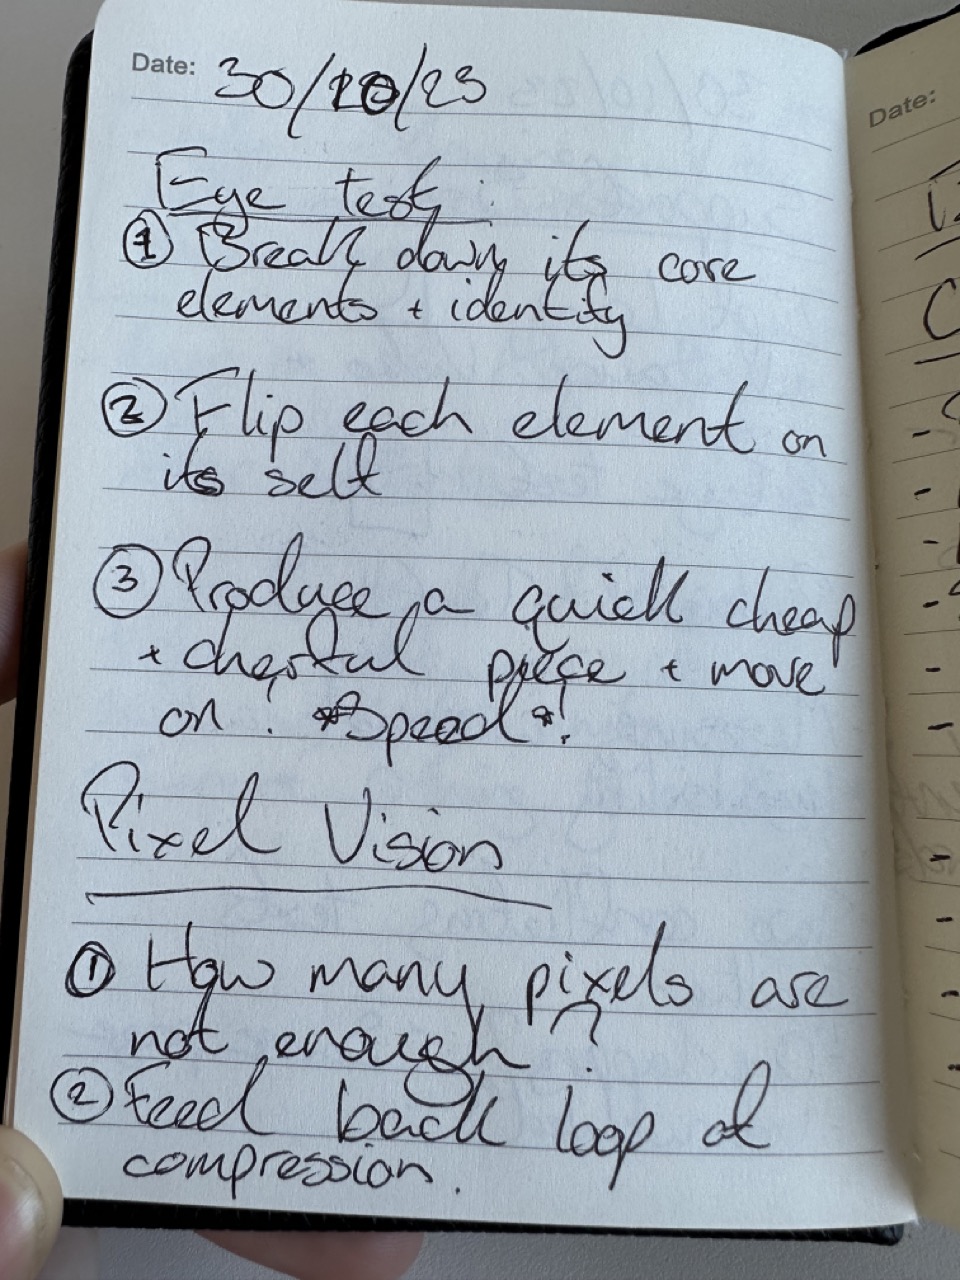 Date: 30/10/23
Eye test:
① Break down its core
elements + identity
② Flip each element on
its self
③ Produce a quick cheap
+ cheerful piece + move
on! *Speed*!
Pixel Vision
① How many pixels are
not enough?
② Feed back loop of
compression.
Date: